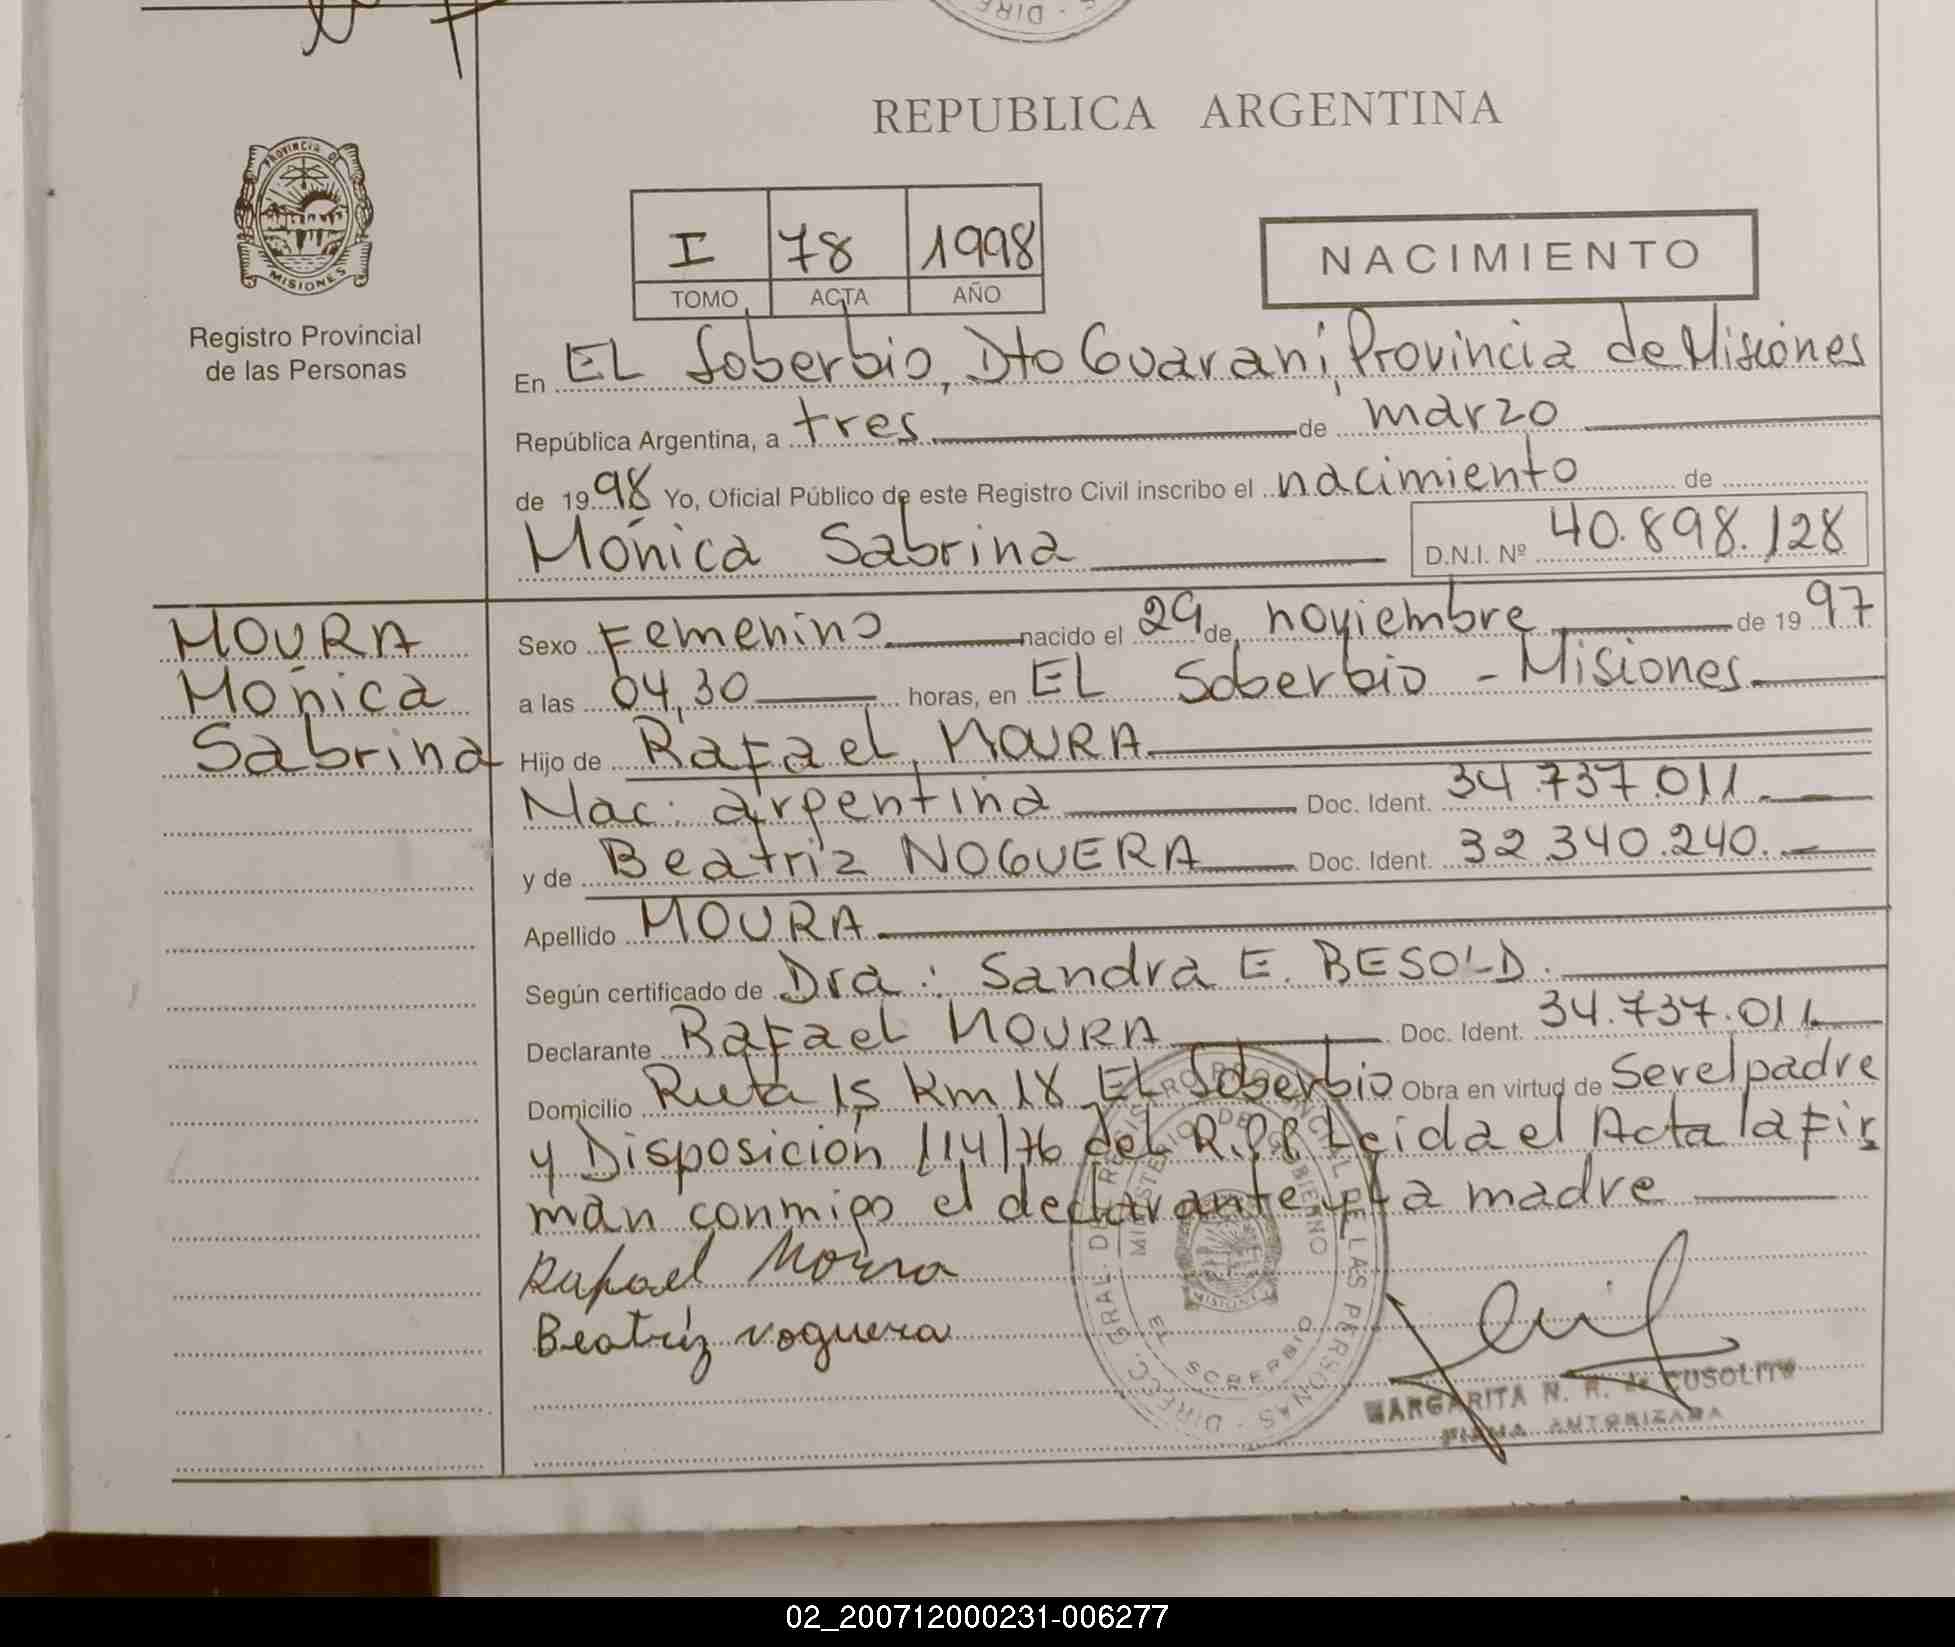 REPUBLICA ARGENTINA
PROVINCIA DE
MISIONES
Registro Provincial
de las Personas
I 78 1998
TOMO ACTA AÑO
NACIMIENTO
En EL Soberbio, Dto Guaraní, Provincia de Misiones
República Argentina, a tres de marzo
de 1998 Yo, Oficial Público de este Registro Civil inscribo el nacimiento de
Mónica Sabrina D.N.I. Nº 40.898.128
MOURA
Mónica
Sabrina
Sexo Femenino nacido el 29 de noviembre de 1997
a las 04,30 horas, en EL Soberbio - Misiones
Hijo de Rafael MOURA
Nac: argentina Doc. Ident. 34.737.011
y de Beatriz NOGUERA Doc. Ident. 32.340.240.
Apellido MOURA
Según certificado de Dra: Sandra E. BESOLD.
Declarante Rafael MOURA Doc. Ident. 34.737.011
Domicilio Ruta 15 Km 18 EL Soberbio Obra en virtud de Ser el padre
y Disposición 114/76 del R.P.P. Leida el Acta la fir
man conmigo el declarante y la madre
Rafael Moura
Beatríz noguera
DIRECC. GRAL. DE REGISTRO PROVINCIAL DE LAS PERSONAS
MINISTERIO DE GOBIERNO
EL SOBERBIO
MISIONES
MARGARITA N. R. de CUSOLITO
FIRMA AUTORIZADA
02_200712000231-006277